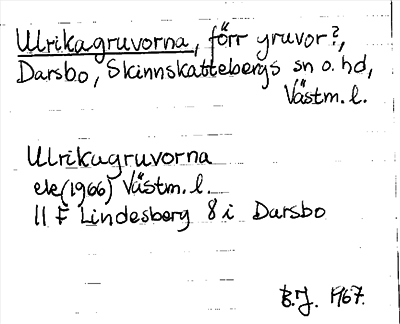 Ulrikagruvorna, förr gruvor?,
Darsbo, Skinnskattebergs sn o. hd,
Västm. l.
Ulrikagruvorna
ek (1966) Västm. l.
11 F Lindesberg 8 i Darsbo
B.J. 1967.